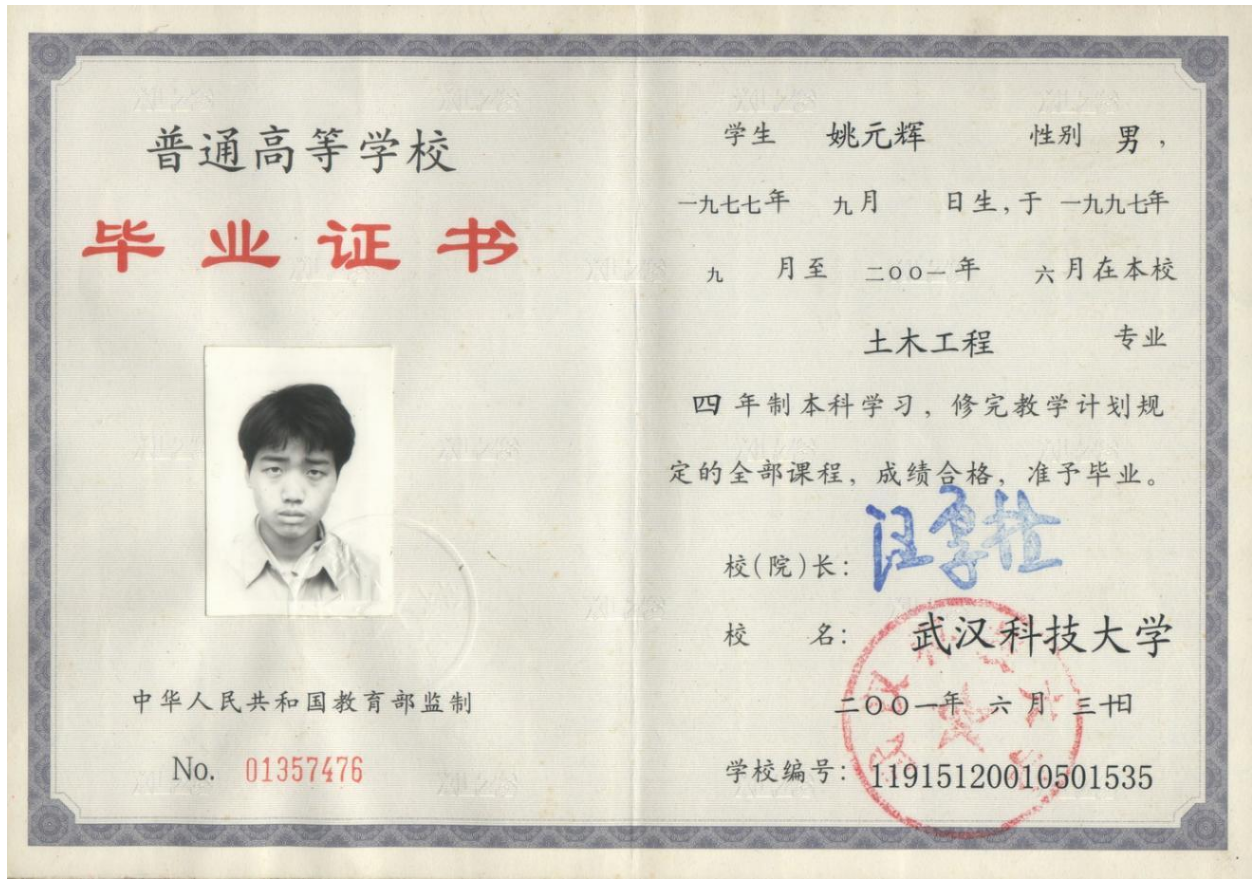 普通高等学校
毕业证书
中华人民共和国教育部监制
No. 01357476
学生 姚元辉 性别 男，
一九七七年 九月 日生，于 一九九七年
九 月至 二〇〇一年 六月在本校
土木工程 专业
四年制本科学习，修完教学计划规
定的全部课程，成绩合格，准予毕业。
校(院)长：
校 名： 武汉科技大学
二〇〇一年 六月 三十日
学校编号：11915120010501535